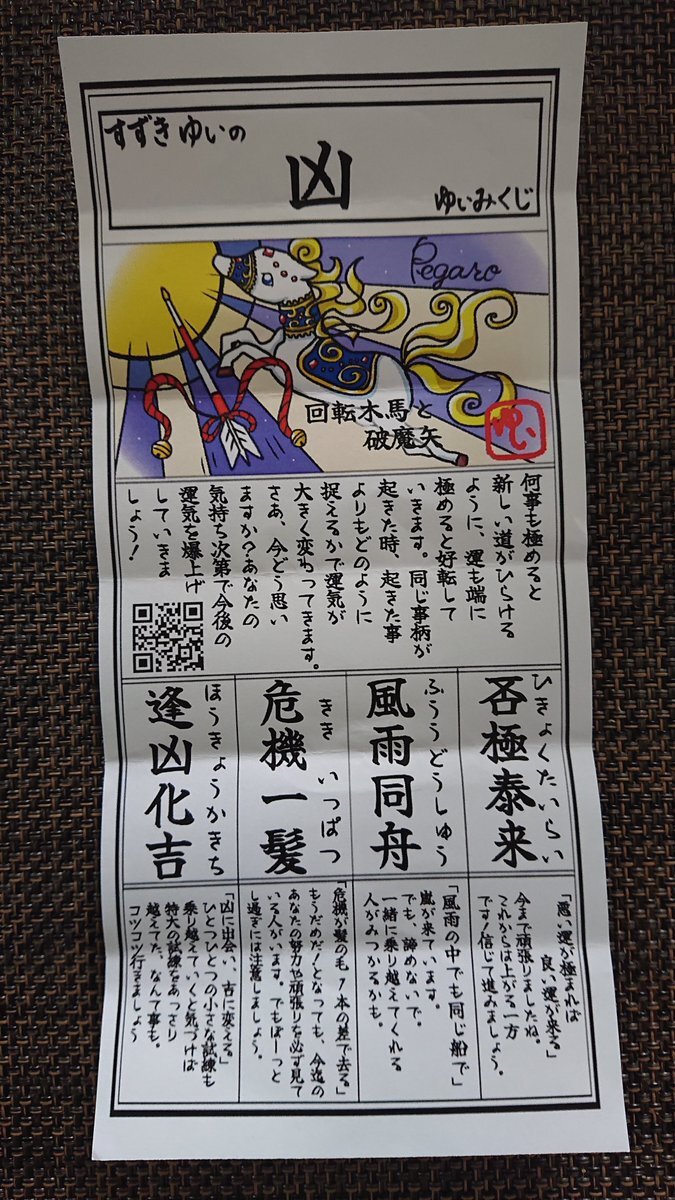 すずきゆいの
凶
ゆいみくじ
Pegaro
回転木馬と
破魔矢
ゆい
何事も極めると
新しい道がひらける
ように、運も端に
極めると好転して
いきます。同じ事柄が
起きた時、起きた事
よりもどのように
捉えるかで運気が
大きく変わってきます。
さあ、今どう思い
ますか?あなたの
気持ち次第で今後の
運気を爆上げ
していきま
しょう!
ひきょくたいらい
否極泰来
「悪い運が極まれば
良い運が来る」
今まで頑張りましたね。
これからは上がる一方
です!信じて進みましょう。
ふううどうしゅう
風雨同舟
「風雨の中でも同じ船で」
嵐が来ています。
でも、諦めないで。
一緒に乗り越えてくれる
人がみつかるかも。
ききいっぱつ
危機一髪
「危機が髪の毛1本の差で去る」
もうだめだ!となっても、今迄の
あなたの努力や頑張りを必ず見て
いる人がいます。でもぼーっと
し過ぎには注意しましょう。
ほうきょうかきち
逢凶化吉
「凶に出会い、吉に変える」
ひとつひとつの小さな試練も
乗り越えていくと気づけば
特大の試練をあっさり
越えてた、なんて事も。
コツコツ行きましょう